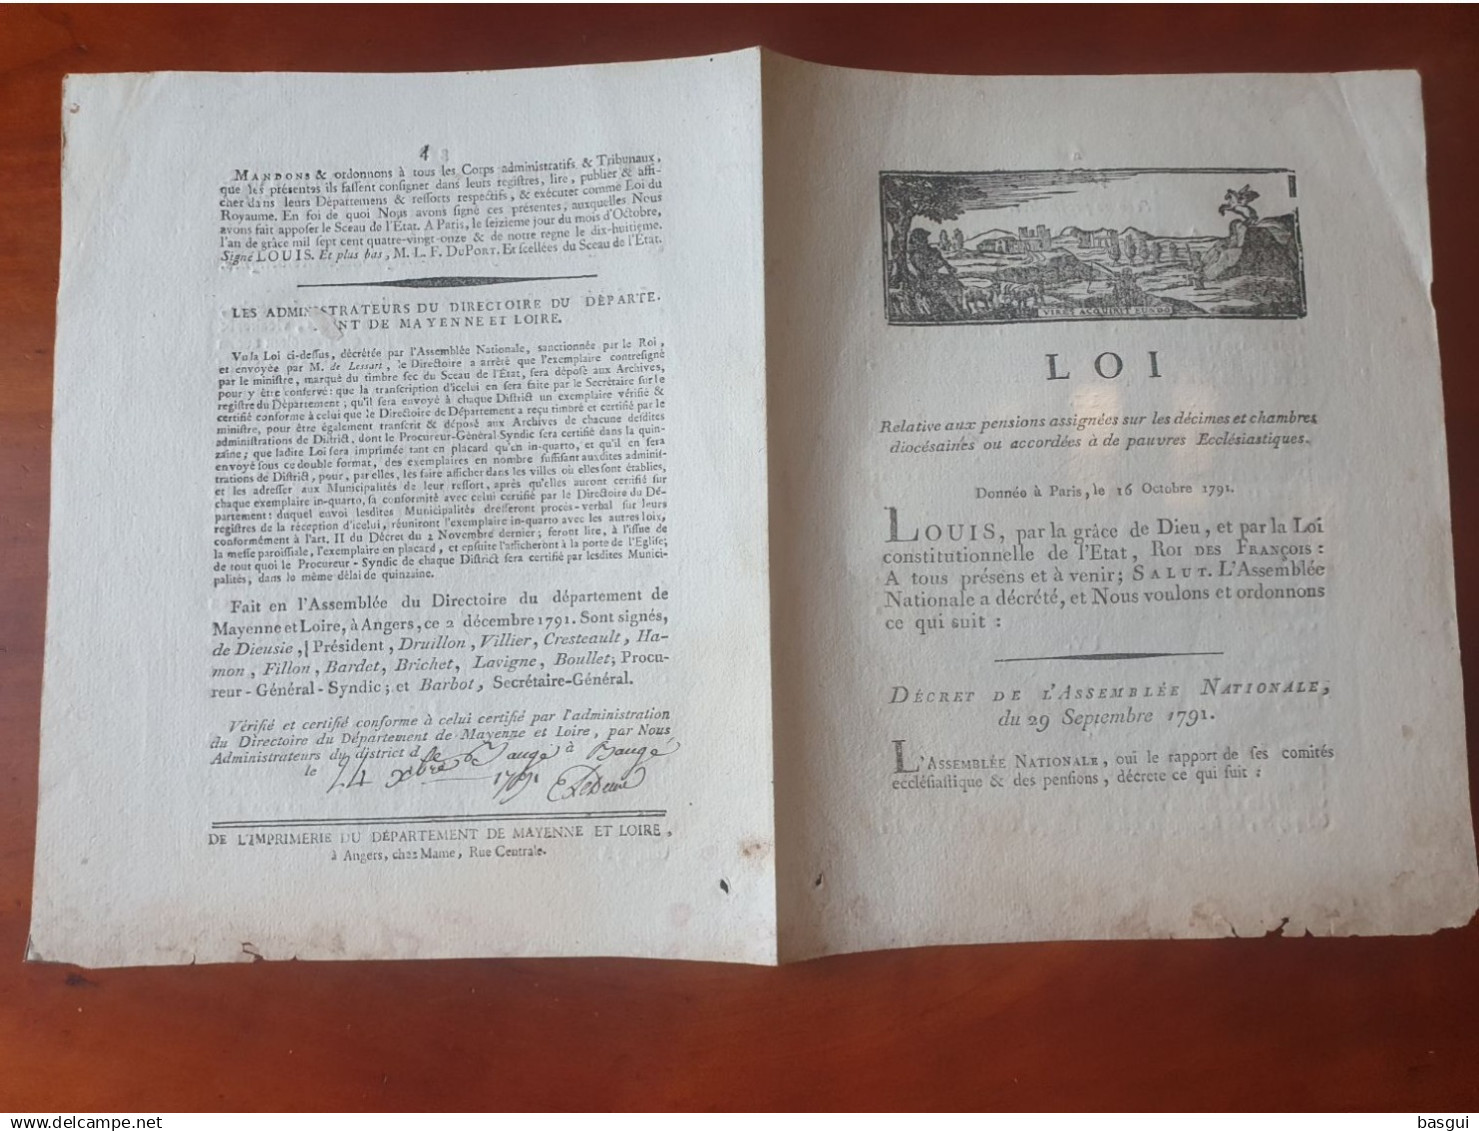 4
MANDONS & ordonnons à tous les Corps administratifs & Tribunaux,
que les présentes ils fassent consigner dans leurs registres, lire, publier & affi-
cher dans leurs Départemens & ressorts respectifs, & exécuter comme Loi du
Royaume. En foi de quoi Nous avons signé ces présentes, auxquelles Nous
avons fait apposer le Sceau de l'Etat. A Paris, le seizième jour du mois d'Octobre,
l'an de grâce mil sept cent quatre-vingt-onze & de notre regne le dix-huitieme.
Signé LOUIS. Et plus bas, M. L. F. DUPORT. Et scellées du Sceau de l'Etat.
LES ADMINISTRATEURS DU DIRECTOIRE DU DÉPARTE-
NT DE MAYENNE ET LOIRE.
Vu la Loi ci-dessus, décrétée par l'Assemblée Nationale, sanctionnée par le Roi,
et envoyée par M. de Lessart, le Directoire a arrêté que l'exemplaire contresigné
par le ministre, marqué du timbre sec du Sceau de l'État, sera déposé aux Archives,
pour y être conservé: que la transcription d'icelui en sera faite par le Secrétaire sur le
registre du Département; qu'il sera envoyé à chaque District un exemplaire vérifié &
certifié conforme à celui que le Directoire de Département a reçu timbré et certifié par le
ministre, pour être également transcrit & déposé aux Archives de chacune desdites
administrations de District, dont le Procureur-Général-Syndic sera certifié dans la quin-
zaine; que ladite Loi sera imprimée tant en placard qu'en in-quarto, et qu'il en sera
envoyé sous ce double format, des exemplaires en nombre suffisant aux dites adminis-
trations de District, pour, par elles, les faire afficher dans les villes où elles sont établies,
et les adresser aux Municipalités de leur ressort, après qu'elles auront certifié sur
chaque exemplaire in-quarto, sa conformité avec celui certifié par le Directoire du Dé-
partement: duquel envoi lesdites Municipalités dresseront procès-verbal sur leurs
registres de la réception d'icelui, réuniront l'exemplaire in-quarto avec les autres loix,
conformément à l'art. II du Décret du 2 Novembre dernier; feront lire, à l'issue de
la messe paroissiale, l'exemplaire en placard, et ensuite l'afficheront à la porte de l'Eglise;
de tout quoi le Procureur-Syndic de chaque District sera certifié par lesdites Munici-
palités, dans le même délai de quinzaine.
Fait en l'Assemblée du Directoire du département de
Mayenne et Loire, à Angers, ce 2 décembre 1791. Sont signés,
de Dieusie, Président, Druillon, Villier, Cresteault, Ha-
mon, Fillon, Bardet, Brichet, Lavigne, Boullet; Procu-
reur-Général-Syndic; et Barbot, Secrétaire-Général.
Vérifié et certifié conforme à celui certifié par l'administration
du Directoire du Département de Mayenne et Loire, par Nous
Administrateurs du district de Baugé à Baugé
le 14 xbre 1791
DE L'IMPRIMERIE DU DÉPARTEMENT DE MAYENNE ET LOIRE,
à Angers, chez Mame, Rue Centrale.
VIRES ACQUIRIT EUNDO
LOI
Relative aux pensions assignées sur les décimes et chambres
diocésaines ou accordées à de pauvres Ecclésiastiques.
Donnée à Paris, le 16 Octobre 1791.
LOUIS, par la grâce de Dieu, et par la Loi
constitutionnelle de l'Etat, ROI DES FRANÇOIS:
A tous présens et à venir; SALUT. L'Assemblée
Nationale a décrété, et Nous voulons et ordonnons
ce qui suit:
DÉCRET DE L'ASSEMBLÉE NATIONALE,
du 29 Septembre 1791.
L'ASSEMBLÉE NATIONALE, oui le rapport de ses comités
ecclésiastique & des pensions, décrete ce qui suit:
basgui